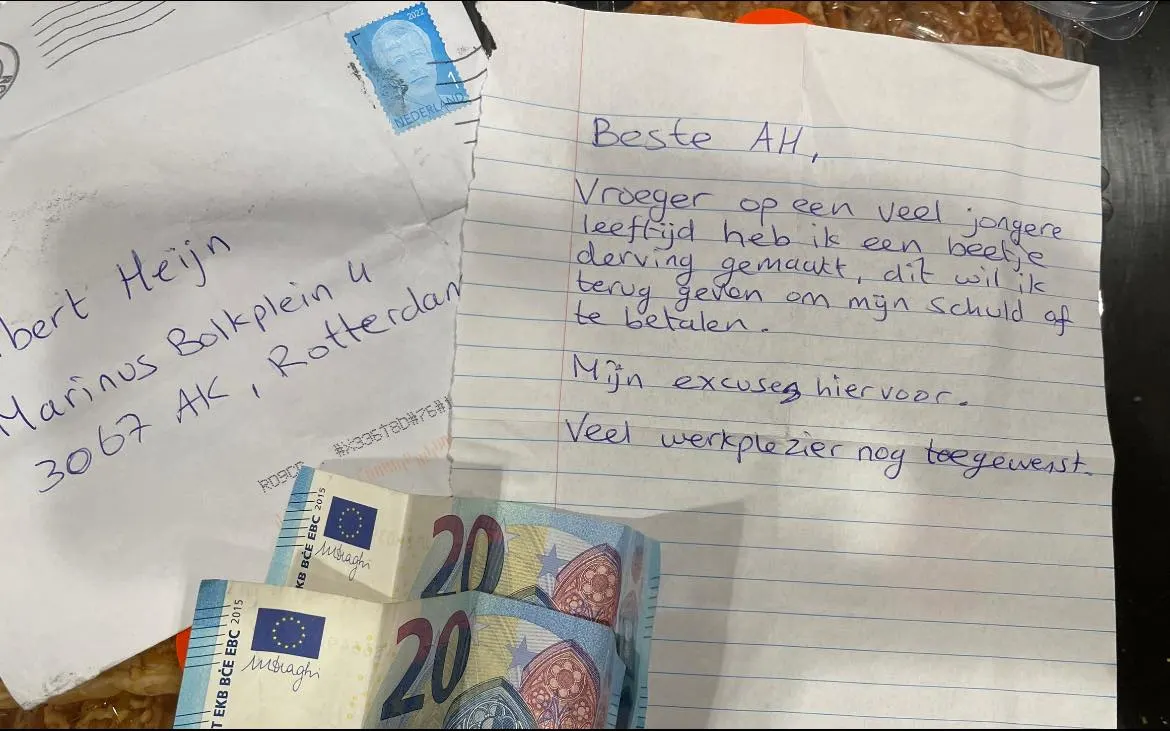 2022
1
NEDERLAND
bert Heijn
Marinus Bolkplein 4
3067 AK, Rotterdam
#X336T8D#76#
Beste AH,
Vroeger op een veel jongere
leeftijd heb ik een beetje
derving gemaakt, dit wil ik
terug geven om mijn schuld af
te betalen.
Mijn excuses hiervoor.
Veel werkplezier nog toegewenst.
EKB BČE EBC 2015
20
EKB BČE EBC 2015
20